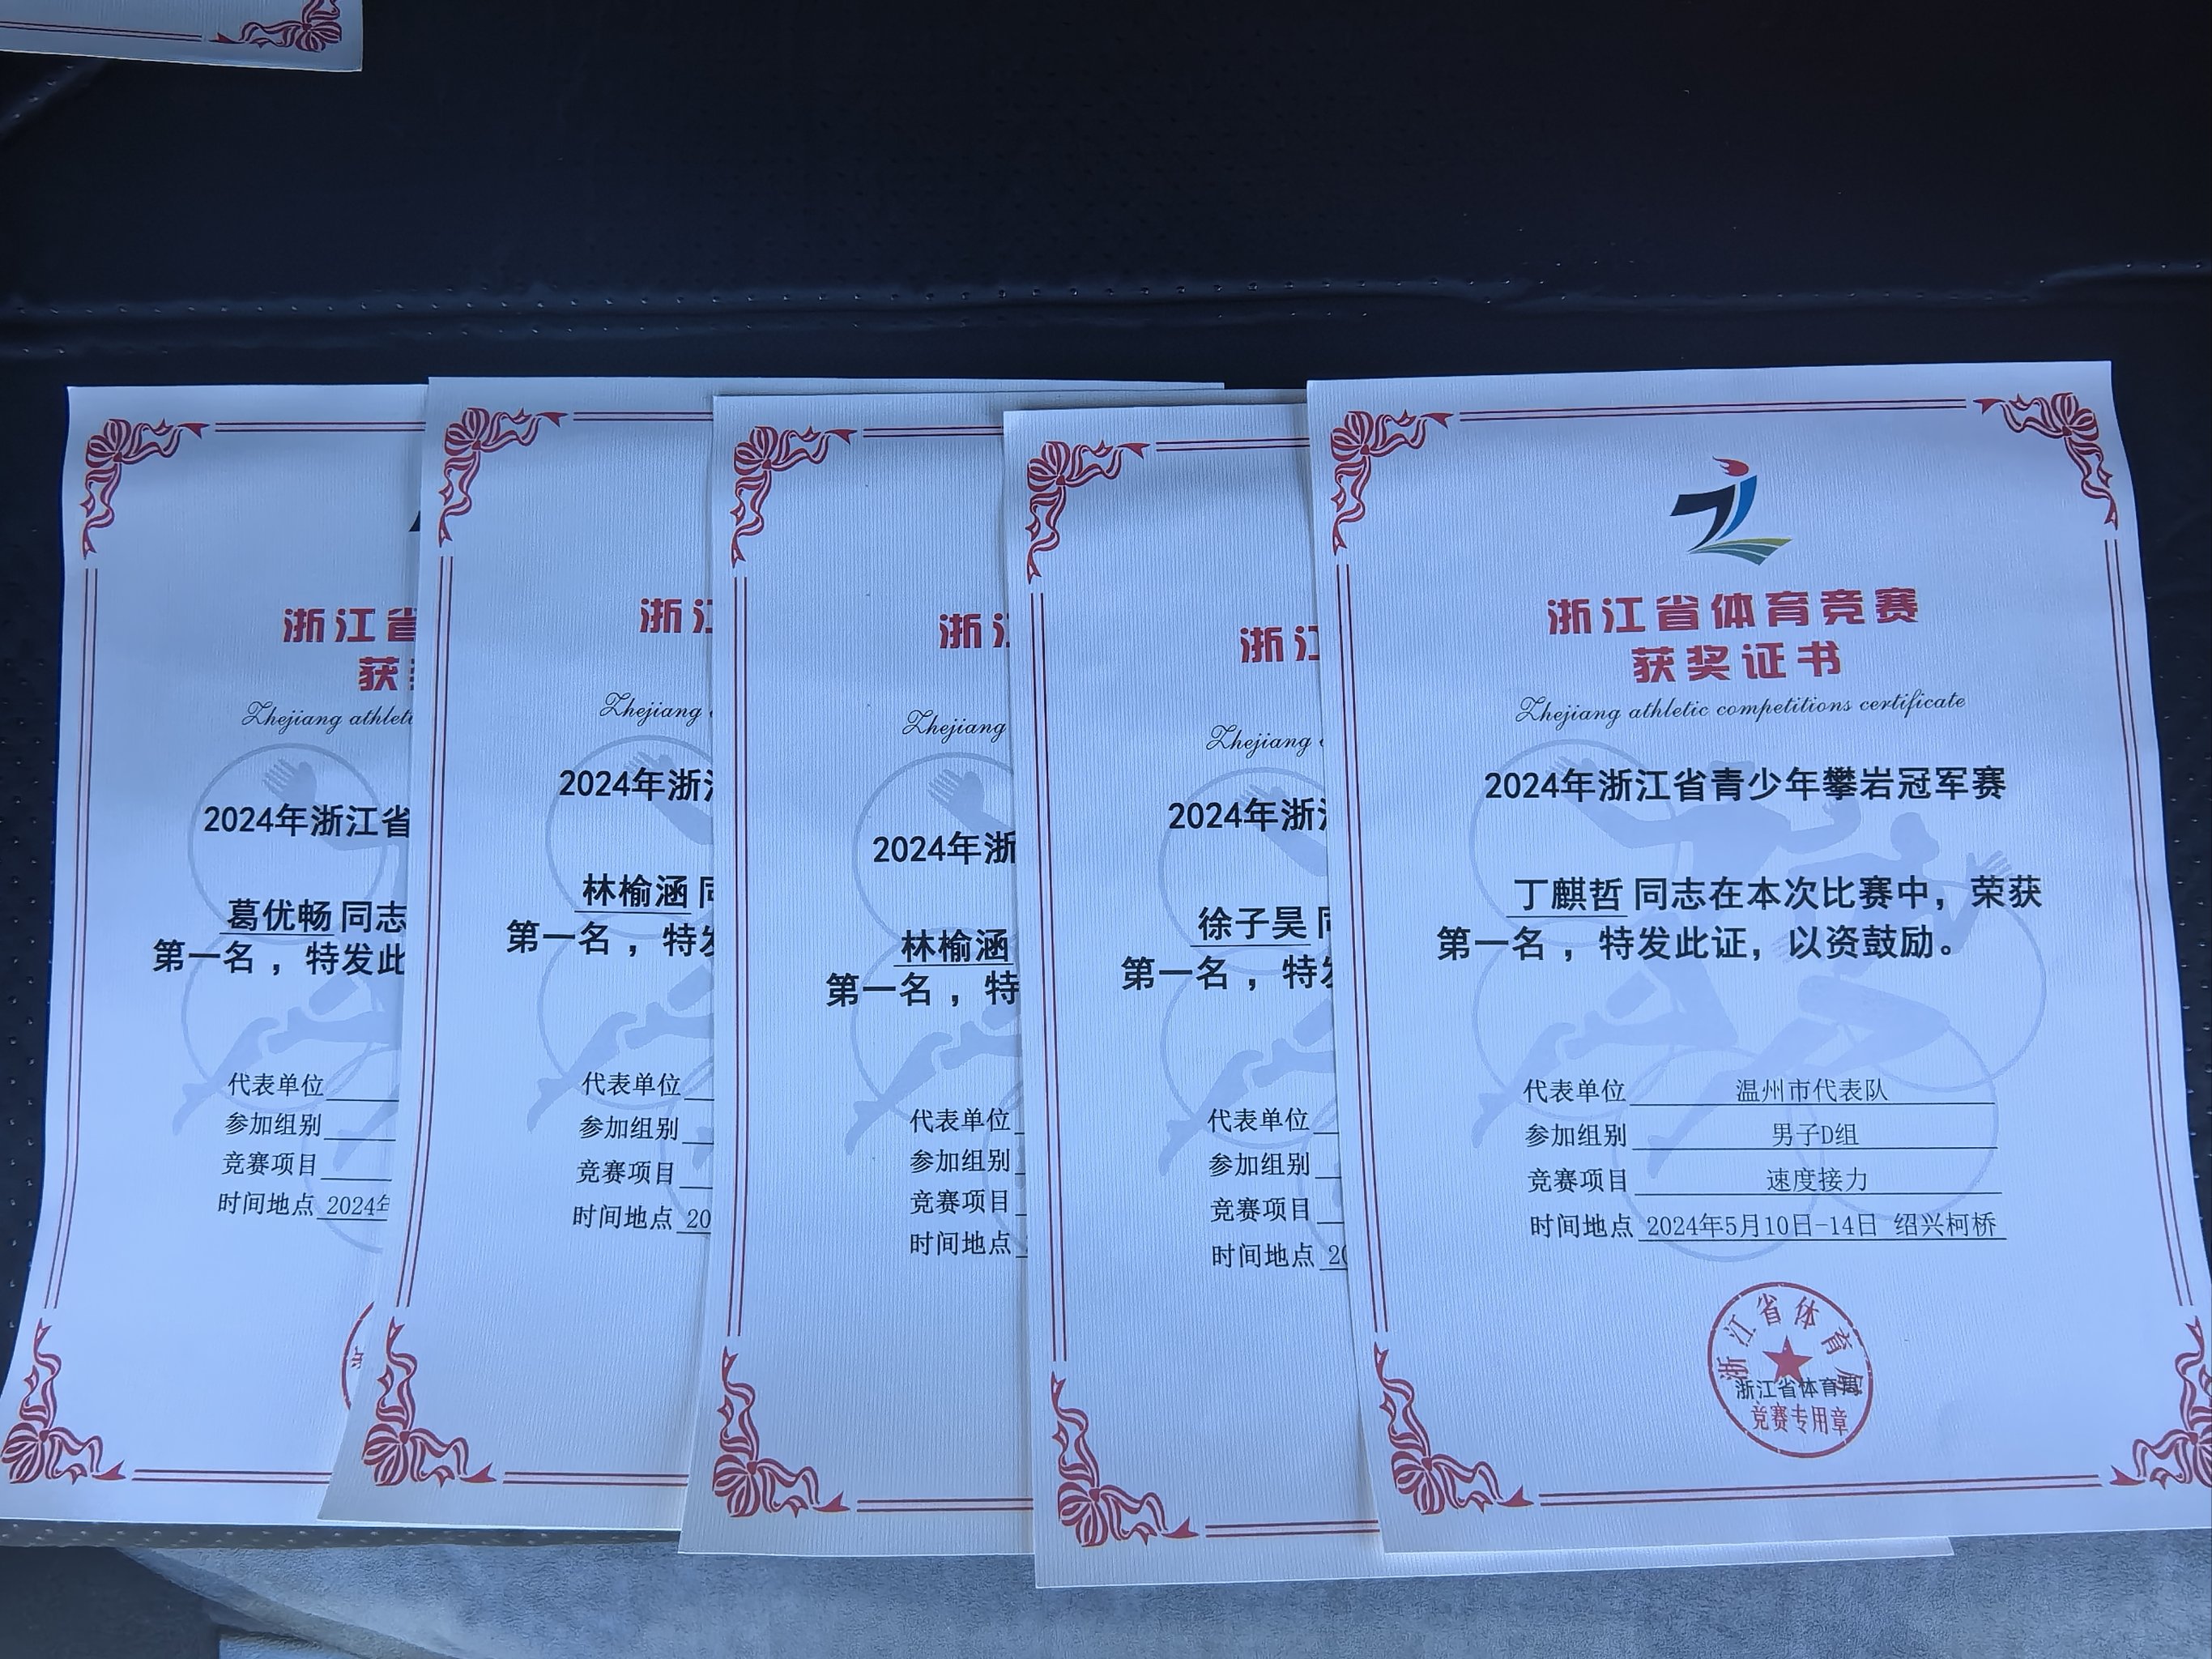 浙江省
获
Zhejiang athleti
2024年浙江省
葛优畅 同志
第一名，特发此
代表单位
参加组别
竞赛项目
时间地点 2024年
浙江
Zhejiang
2024年浙江
林榆涵 同
第一名，特发
代表单位
参加组别
竞赛项目
时间地点 20
浙江
Zhejiang
2024年浙
林榆涵
第一名，特
代表单位
参加组别
竞赛项目
时间地点
浙江
Zhejiang
2024年浙江
徐子昊 同
第一名，特发
代表单位
参加组别
竞赛项目
时间地点 20
浙江省体育竞赛
获奖证书
Zhejiang athletic competitions certificate
2024年浙江省青少年攀岩冠军赛
丁麒哲 同志在本次比赛中，荣获
第一名，特发此证，以资鼓励。
代表单位 温州市代表队
参加组别 男子D组
竞赛项目 速度接力
时间地点 2024年5月10日-14日 绍兴柯桥
浙江省体育局
浙江省体育局
竞赛专用章